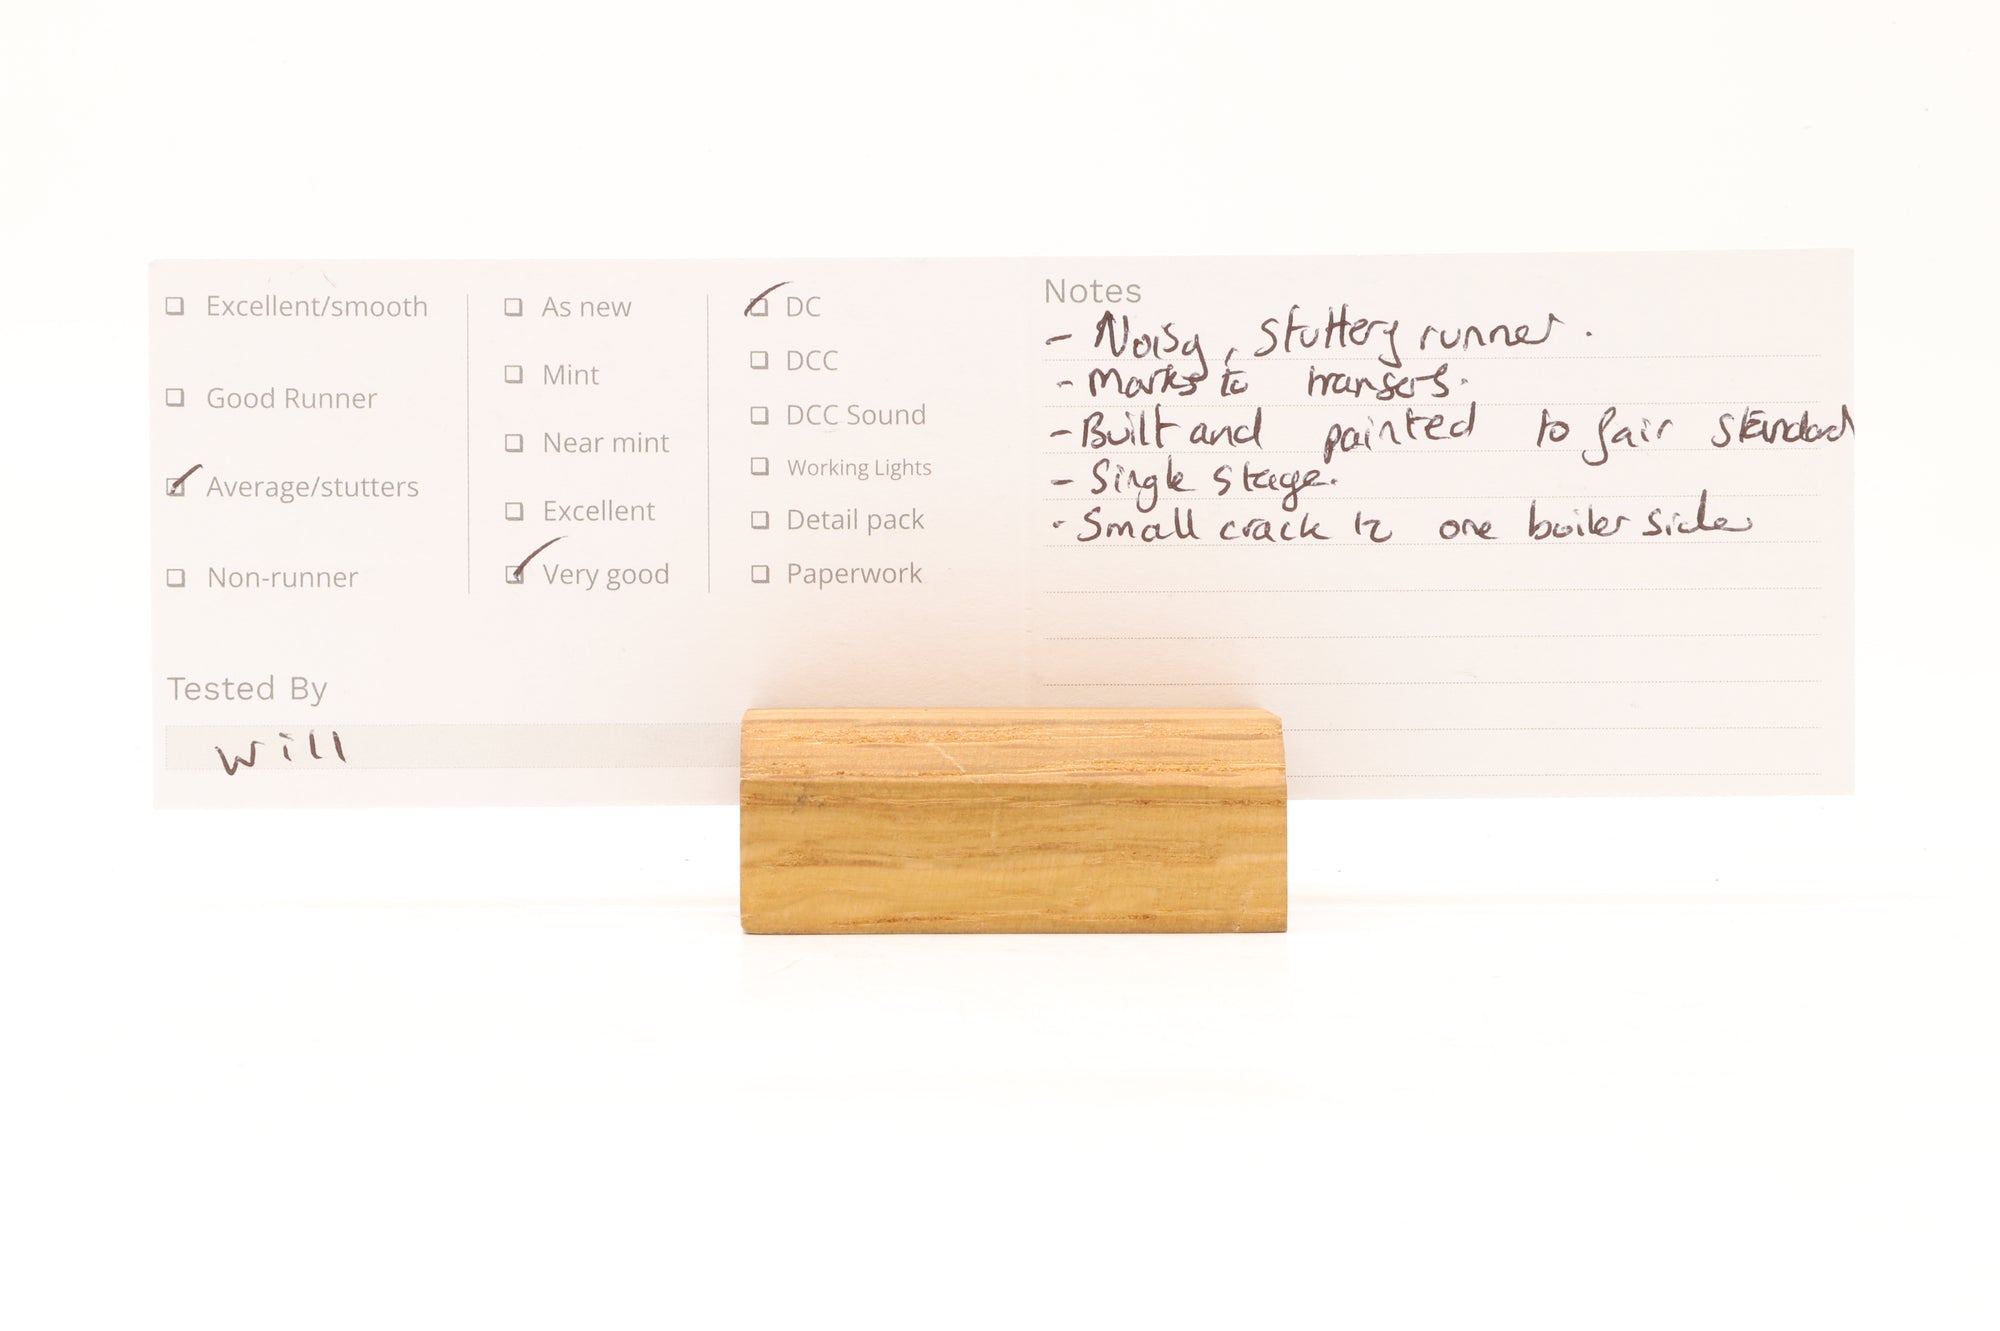 Excellent/smooth
Good Runner
Average/stutters
Non-runner
As new
Mint
Near mint
Excellent
Very good
DC
DCC
DCC Sound
Working Lights
Detail pack
Paperwork
Tested By
Will
Notes
- Noisy, stuttery runner.
- Marks to
- Built and painted to fair standard
- Single stage.
- Small crack to one boiler side